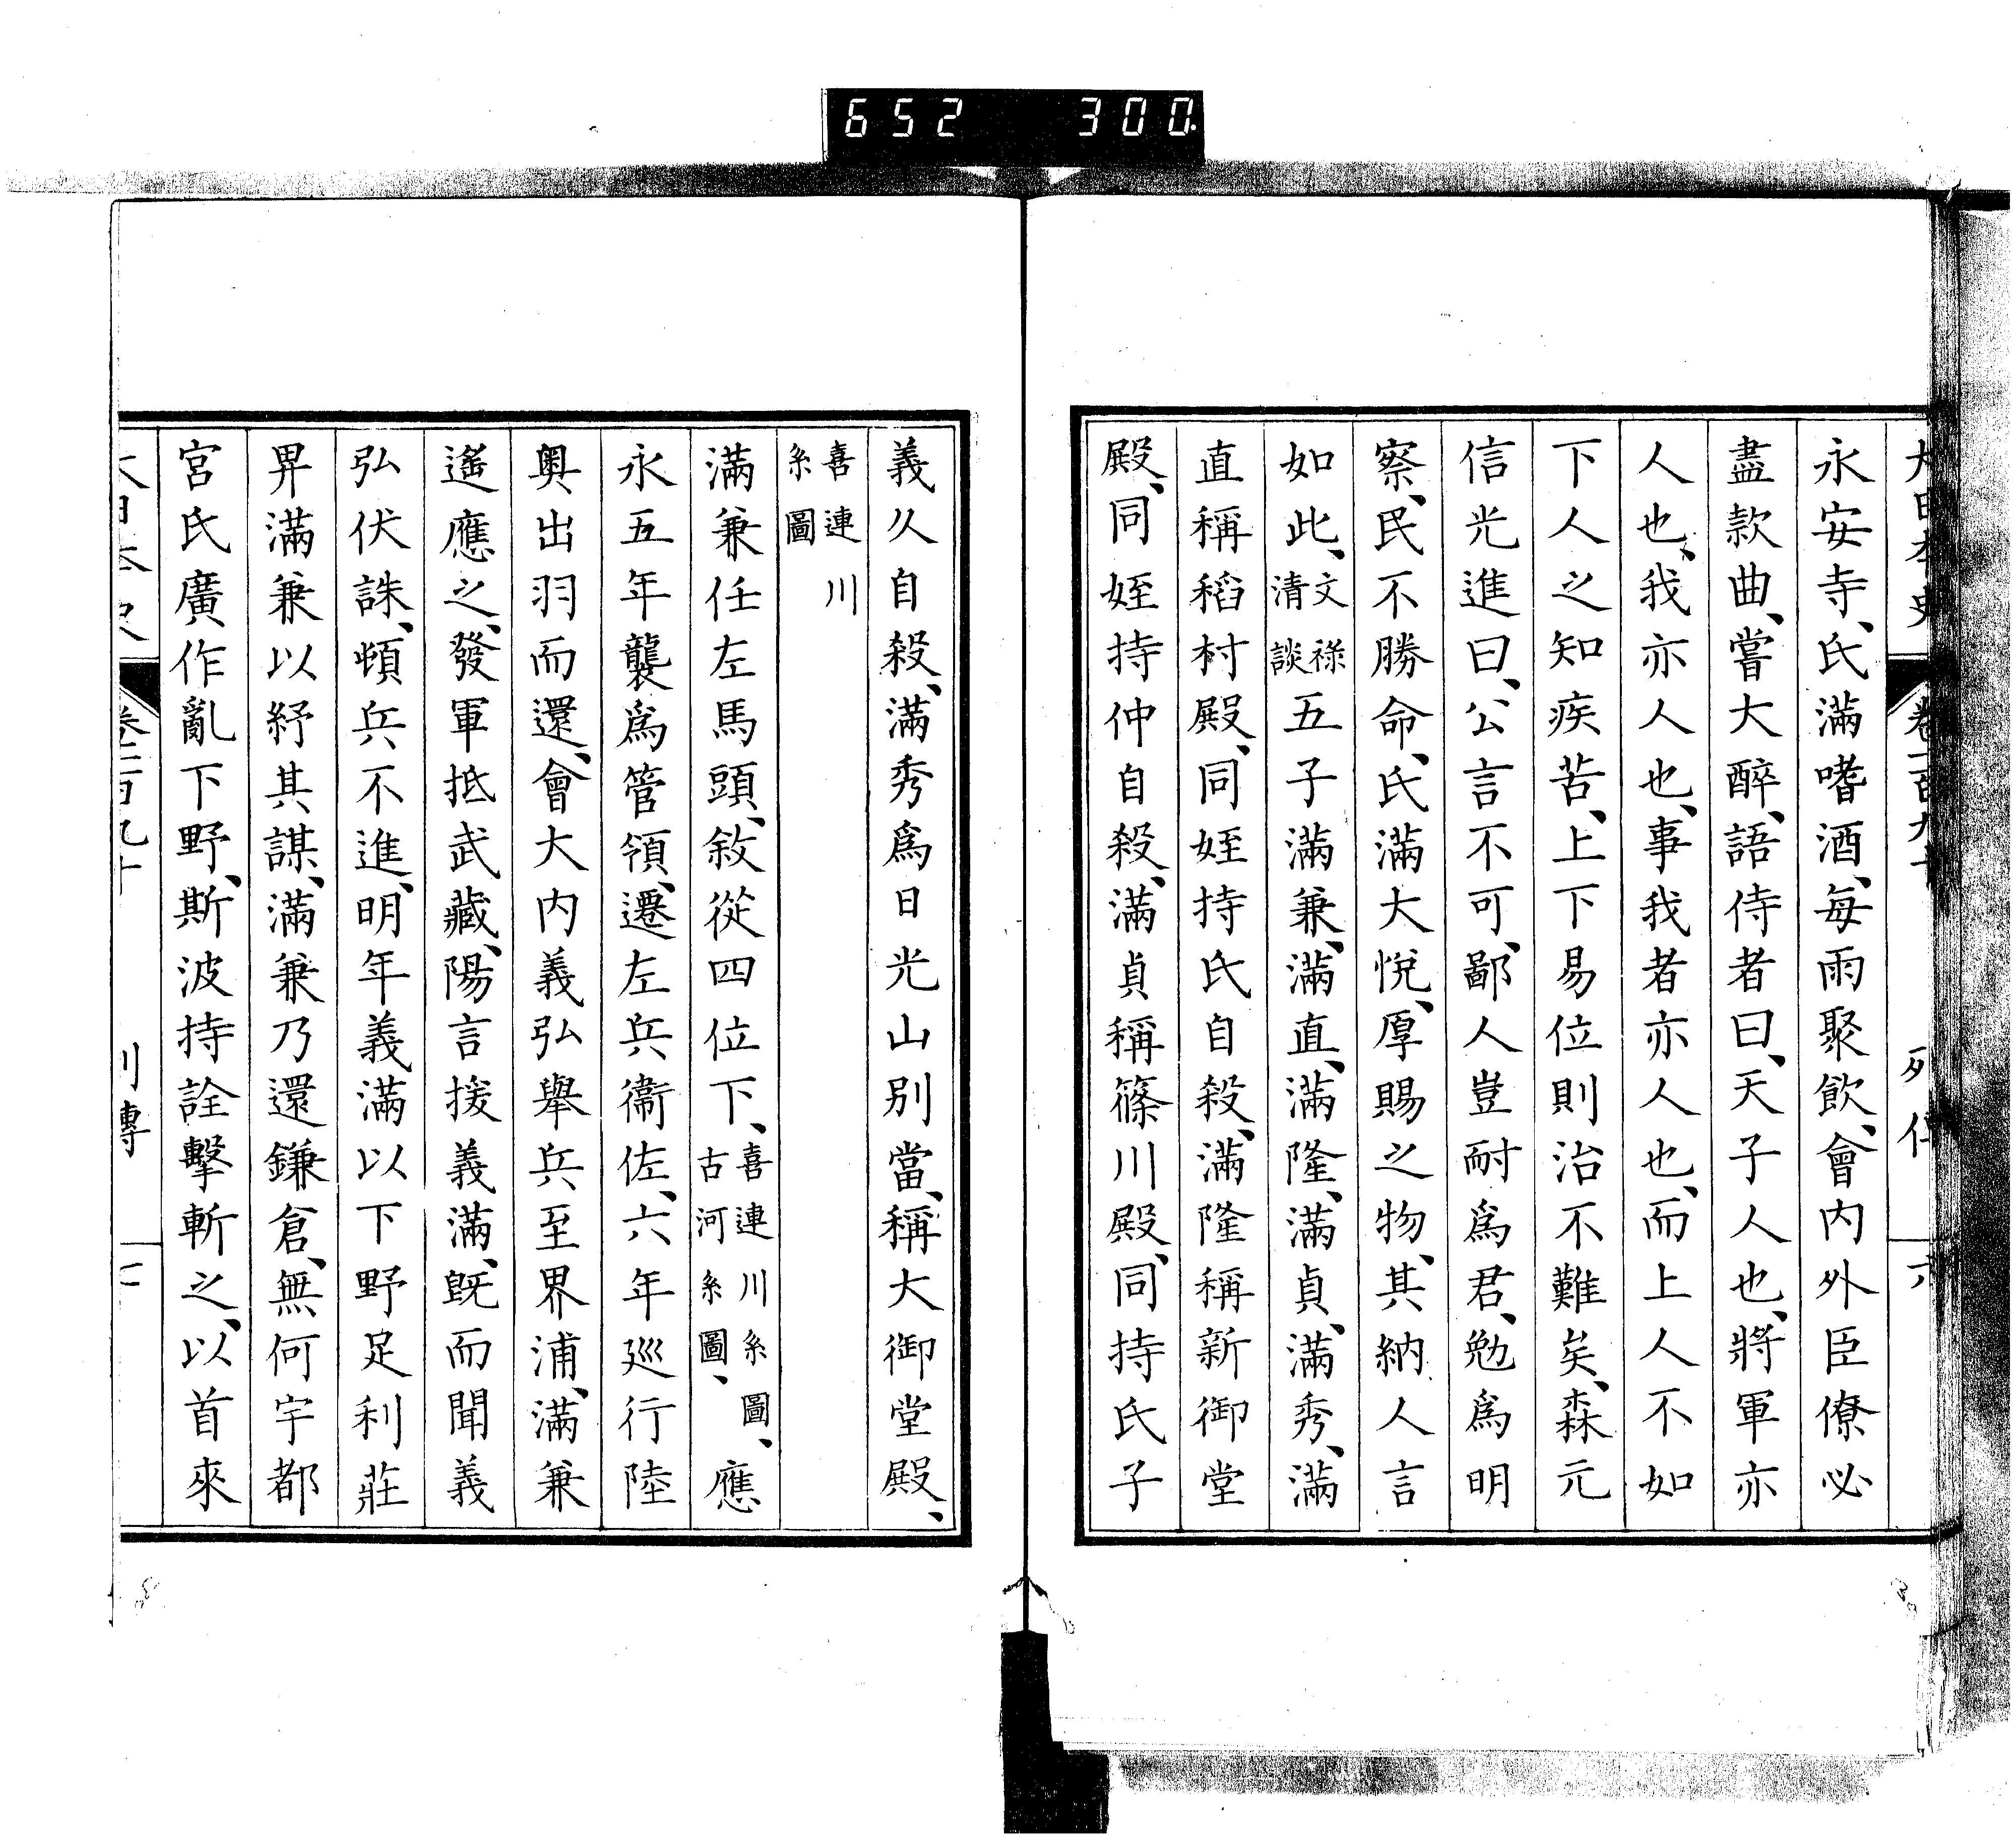 652 300
永安寺、氏滿嗜酒、每雨聚飲、會内外臣僚必
盡款曲、嘗大醉、語侍者曰、天子人也、將軍亦
人也、我亦人也、事我者亦人也、而上人不如
下人之知疾苦、上下易位則治不難矣、森元
信光進曰、公言不可、鄙人豈耐爲君、勉爲明
察、民不勝命、氏滿大悅、厚賜之物、其納人言
如此、文祿清談五子滿兼、滿直、滿隆、滿貞、滿秀、滿
直稱稻村殿、同姪持氏自殺、滿隆稱新御堂
殿、同姪持仲自殺、滿貞稱篠川殿、同持氏子
義久自殺、滿秀爲日光山別當、稱大御堂殿、
喜連川系圖
滿兼任左馬頭、敘從四位下、喜連川系圖、古河系圖、應
永五年襲爲管領、遷左兵衞佐、六年巡行陸
奧出羽而還、會大内義弘舉兵至界浦、滿兼
遙應之、發軍抵武藏、陽言援義滿、既而聞義
弘伏誅、頓兵不進、明年義滿以下野足利莊
畀滿兼以紓其謀、滿兼乃還鎌倉、無何宇都
宮氏廣作亂下野、斯波持詮擊斬之、以首來